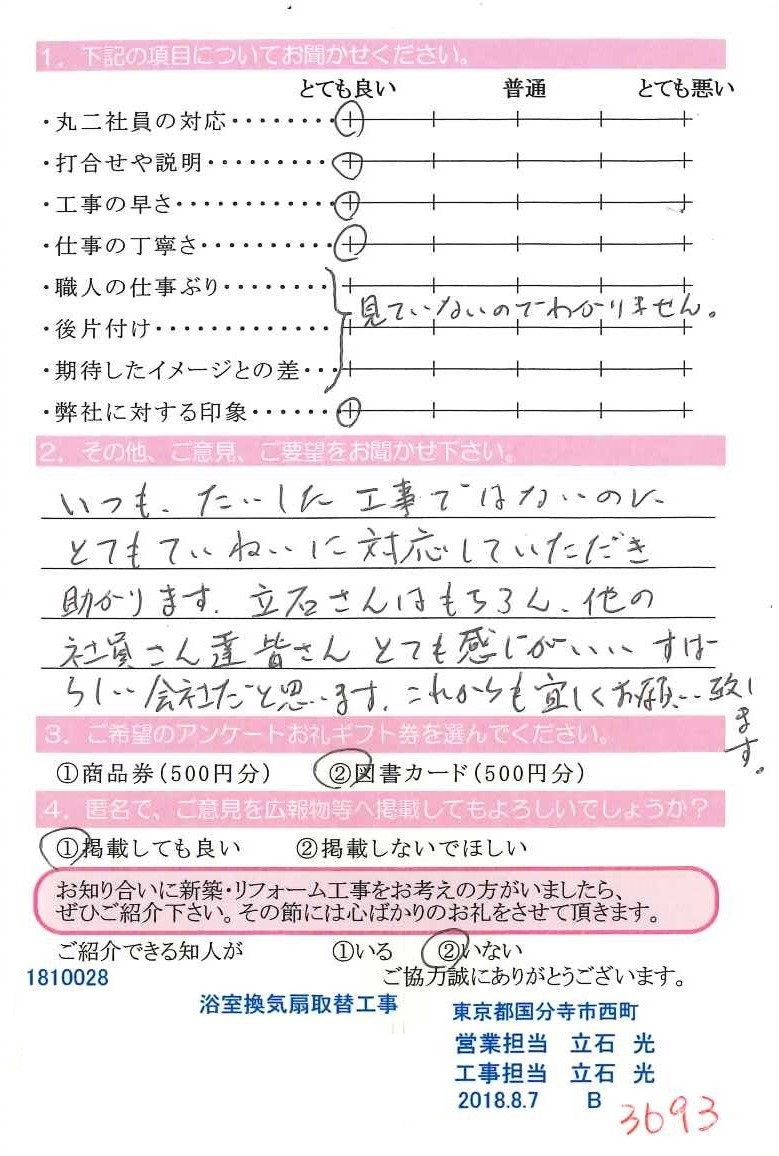 1. 下記の項目についてお聞かせください。
とても良い 普通 とても悪い
・丸二社員の対応・・・・・・・・
・打合せや説明・・・・・・・・・
・工事の早さ・・・・・・・・・・・
・仕事の丁寧さ・・・・・・・・・
・職人の仕事ぶり・・・・・・・
・後片付け・・・・・・・・・・・・
見ていないのでわかりません。
・期待したイメージとの差・・・
・弊社に対する印象・・・・・・
2. その他、ご意見、ご要望をお聞かせ下さい。
いつも、たいした工事ではないのに
とてもていねいに対応していただき
助かります。立石さんはもちろん、他の
社員さん達皆さんとても感じがいい すば
らしい会社だと思います。これからも宜しくお願い致し
ます。
3. ご希望のアンケートお礼ギフト券を選んでください。
①商品券(500円分) ②図書カード(500円分)
4. 匿名で、ご意見を広報物等へ掲載してもよろしいでしょうか?
①掲載しても良い ②掲載しないでほしい
お知り合いに新築・リフォーム工事をお考えの方がいましたら、
ぜひご紹介下さい。その節には心ばかりのお礼をさせて頂きます。
ご紹介できる知人が ①いる ②いない
1810028 ご協力誠にありがとうございます。
浴室換気扇取替工事 東京都国分寺市西町
営業担当 立石 光
工事担当 立石 光
2018.8.7 B
3693